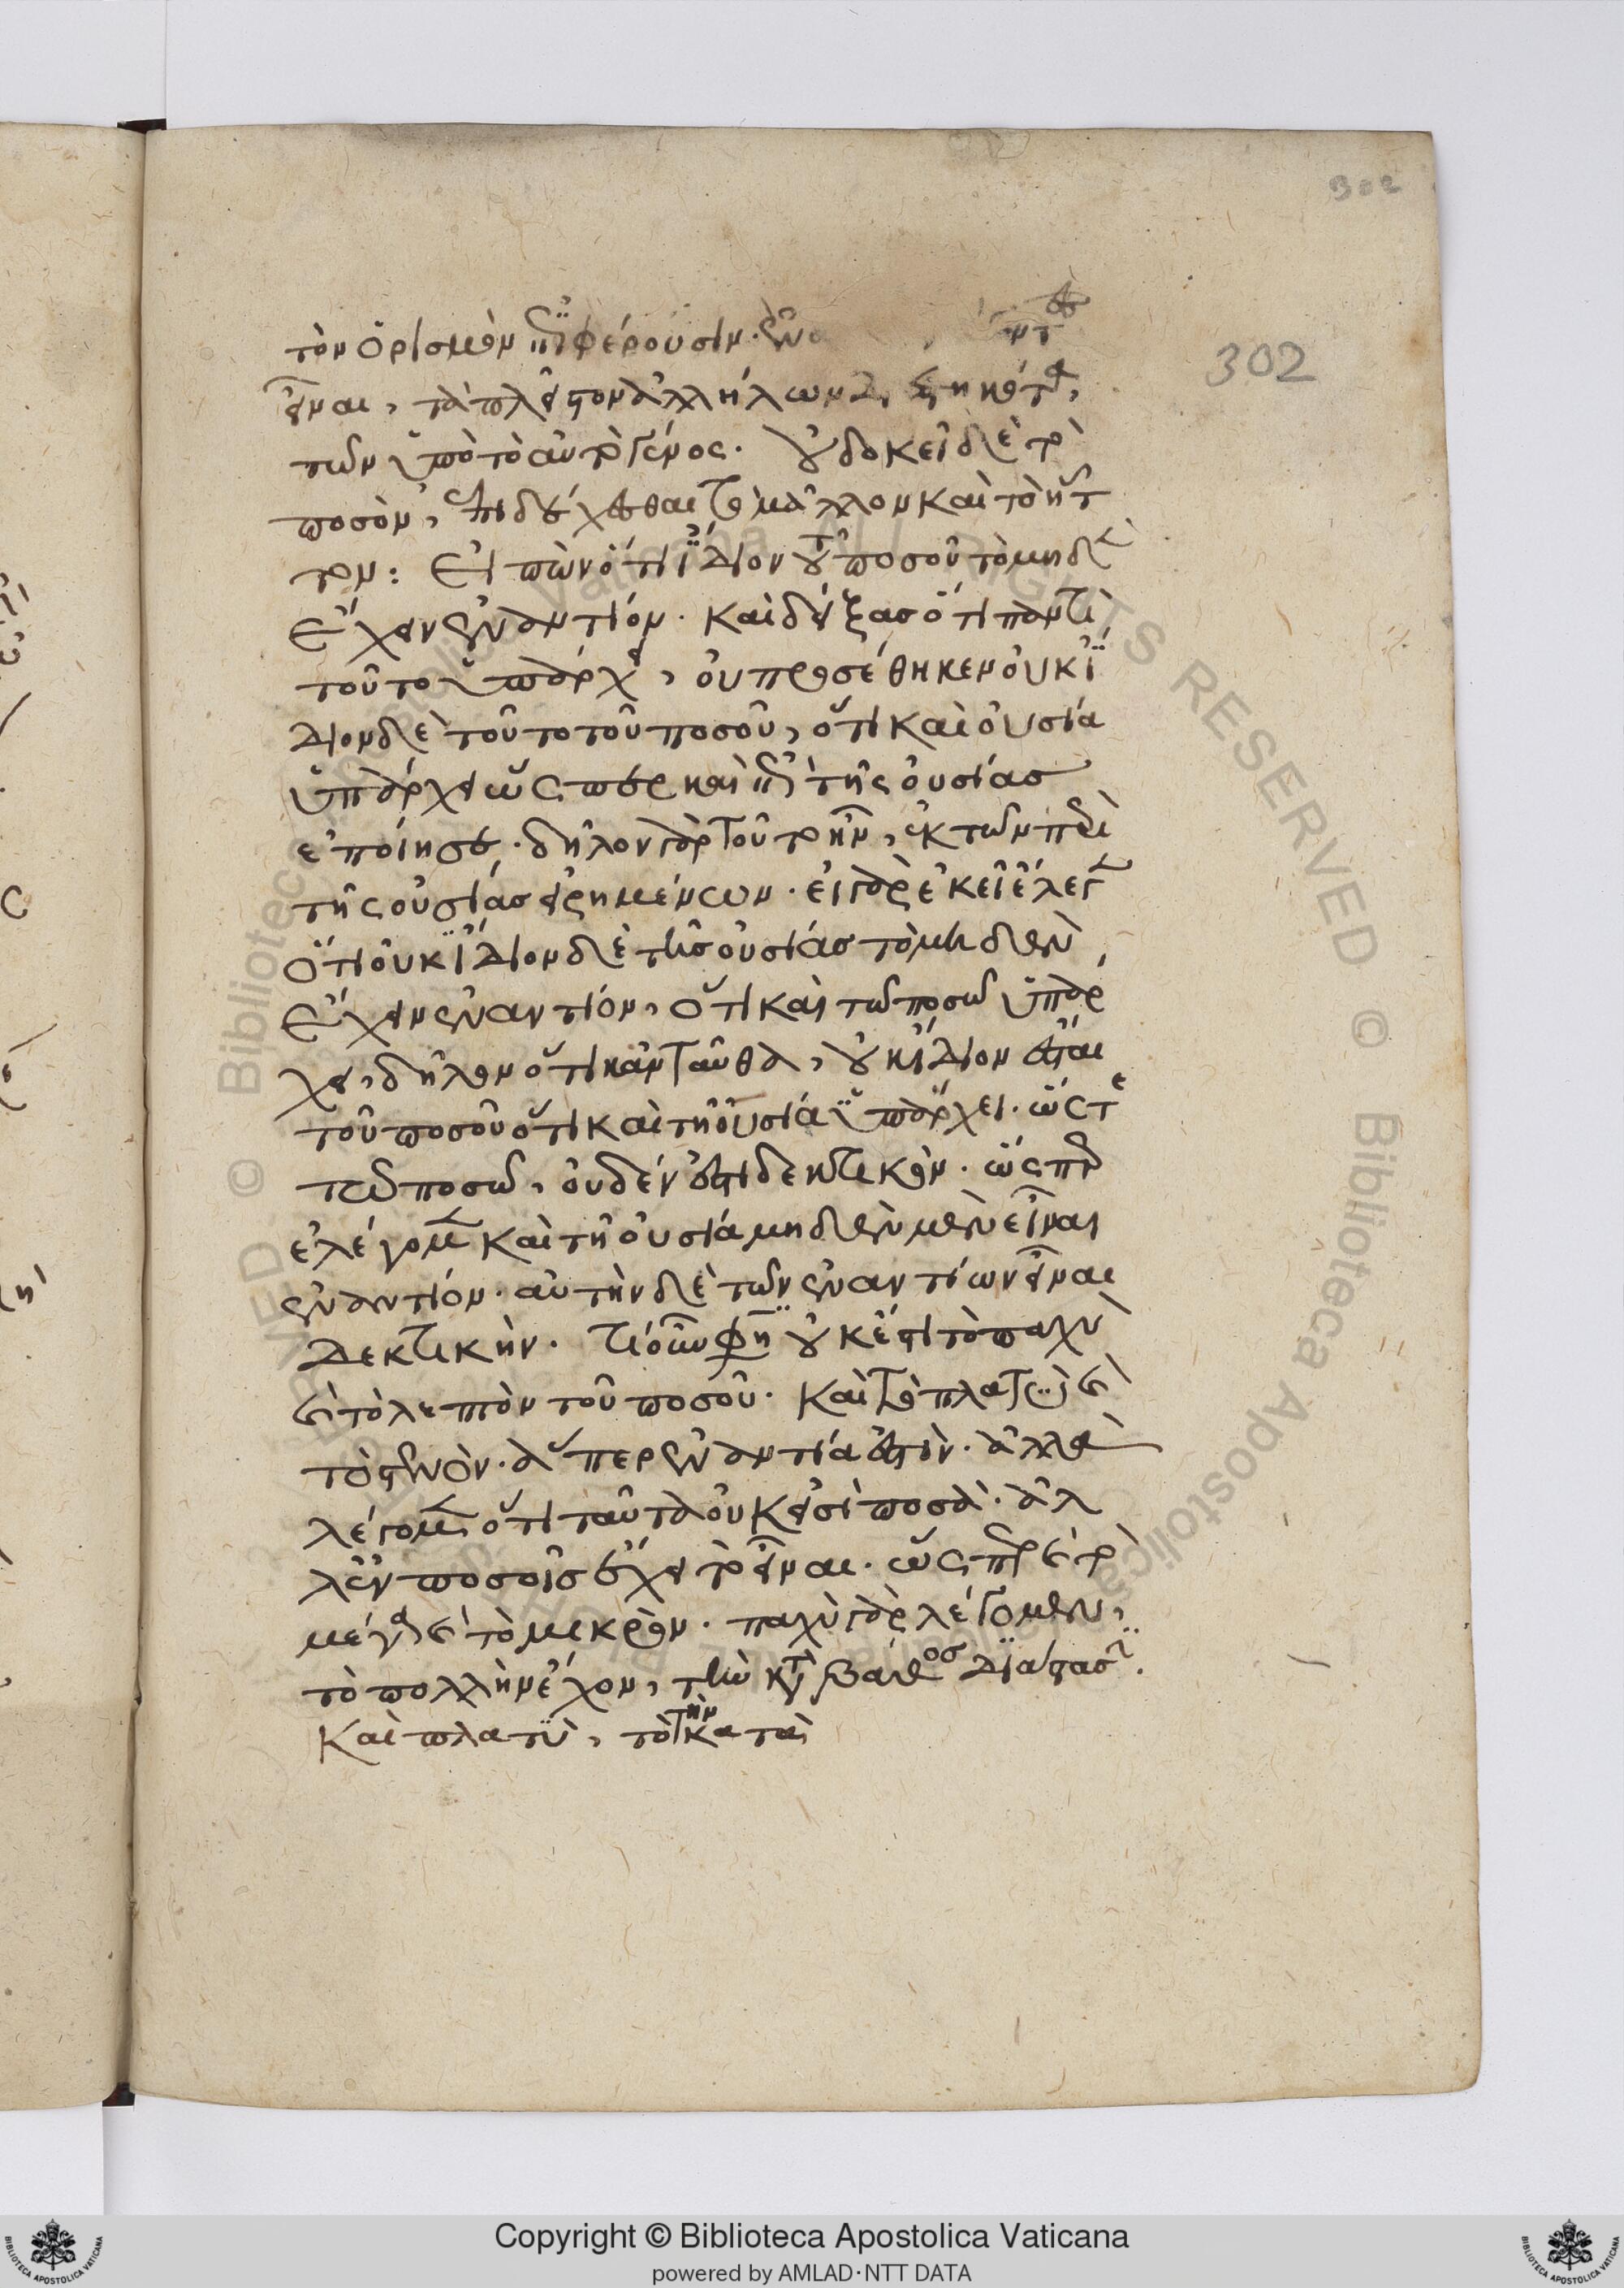 302
302
τὸν ὁρισμὸν ἐπιφέρουσιν·
εἶναι, τὰ πλεῖστον ἀλλήλων διεστηκότα,
τῶν ὑπὸ τὸ αὐτὸ γένος. οὐ δοκεῖ δὲ τὸ
ποσὸν, ἐπιδέχεσθαι τὸ μᾶλλον καὶ τὸ ἧτ
τον: Εἰπὼν ὅτι ἴδιον τοῦ ποσοῦ τὸ μηδὲ
ἔχειν ἐναντίον. καὶ δείξας ὅτι παντὶ
τοῦτο ὑπάρχει, οὐ προσέθηκεν οὐκ ἴ
διον δὲ τοῦτο τοῦ ποσοῦ, ὅτι καὶ οὐσία
ὑπάρχει ὥσπερ καὶ ἐπὶ τῆς οὐσίας
ἐποίησε. δῆλον γὰρ τοῦτο ἦν, ἐκ τῶν περὶ
τῆς οὐσίας εἰρημένων. εἰ γὰρ ἐκεῖ ἔλεγεν
ὅτι οὐκ ἴδιον δὲ τῆς οὐσίας τὸ μηδὲν
ἔχειν ἐναντίον, ὅτι καὶ τῶ ποσῶ ὑπάρ
χει, δῆλον ὅτι κἀνταῦθα, οὐκ ἴδιον ἔσται
τοῦ ποσοῦ ὅτι καὶ τῆ οὐσία ὑπάρχει. ὥστε
τῶ ποσῶ, οὐδέν ἐστι δεκτικὸν. ὥσπερ
ἐλέγομεν καὶ τῆ οὐσία μηδὲν μὲν εἶναι
ἐναντίον. αὐτὴν δὲ τῶν ἐναντίων εἶναι
δεκτικὴν. τί οὖν φησι οὐκ ἔστι τὸ παχὺ
καὶ τὸ λεπτὸν τοῦ ποσοῦ. καὶ τὸ πλατὺ καὶ
τὸ στενὸν. ἅπερ ἐναντία ἐστὶν. ἀλλὰ
λέγομεν ὅτι ταῦτα οὐκ εἰσὶ ποσὰ. ἀλ
λ' ἐν ποσοῖς ἔχει τὸ εἶναι. ὥσπερ καὶ τὸ
μέγα καὶ τὸ μικρὸν. παχὺ γὰρ λέγομεν,
τὸ πολλὴν ἔχον, τὴν κατὰ βάθος διάστασιν.
καὶ πλατὺ, τὸ τὴν κατὰ
Copyright © Biblioteca Apostolica Vaticana
powered by AMLAD·NTT DATA